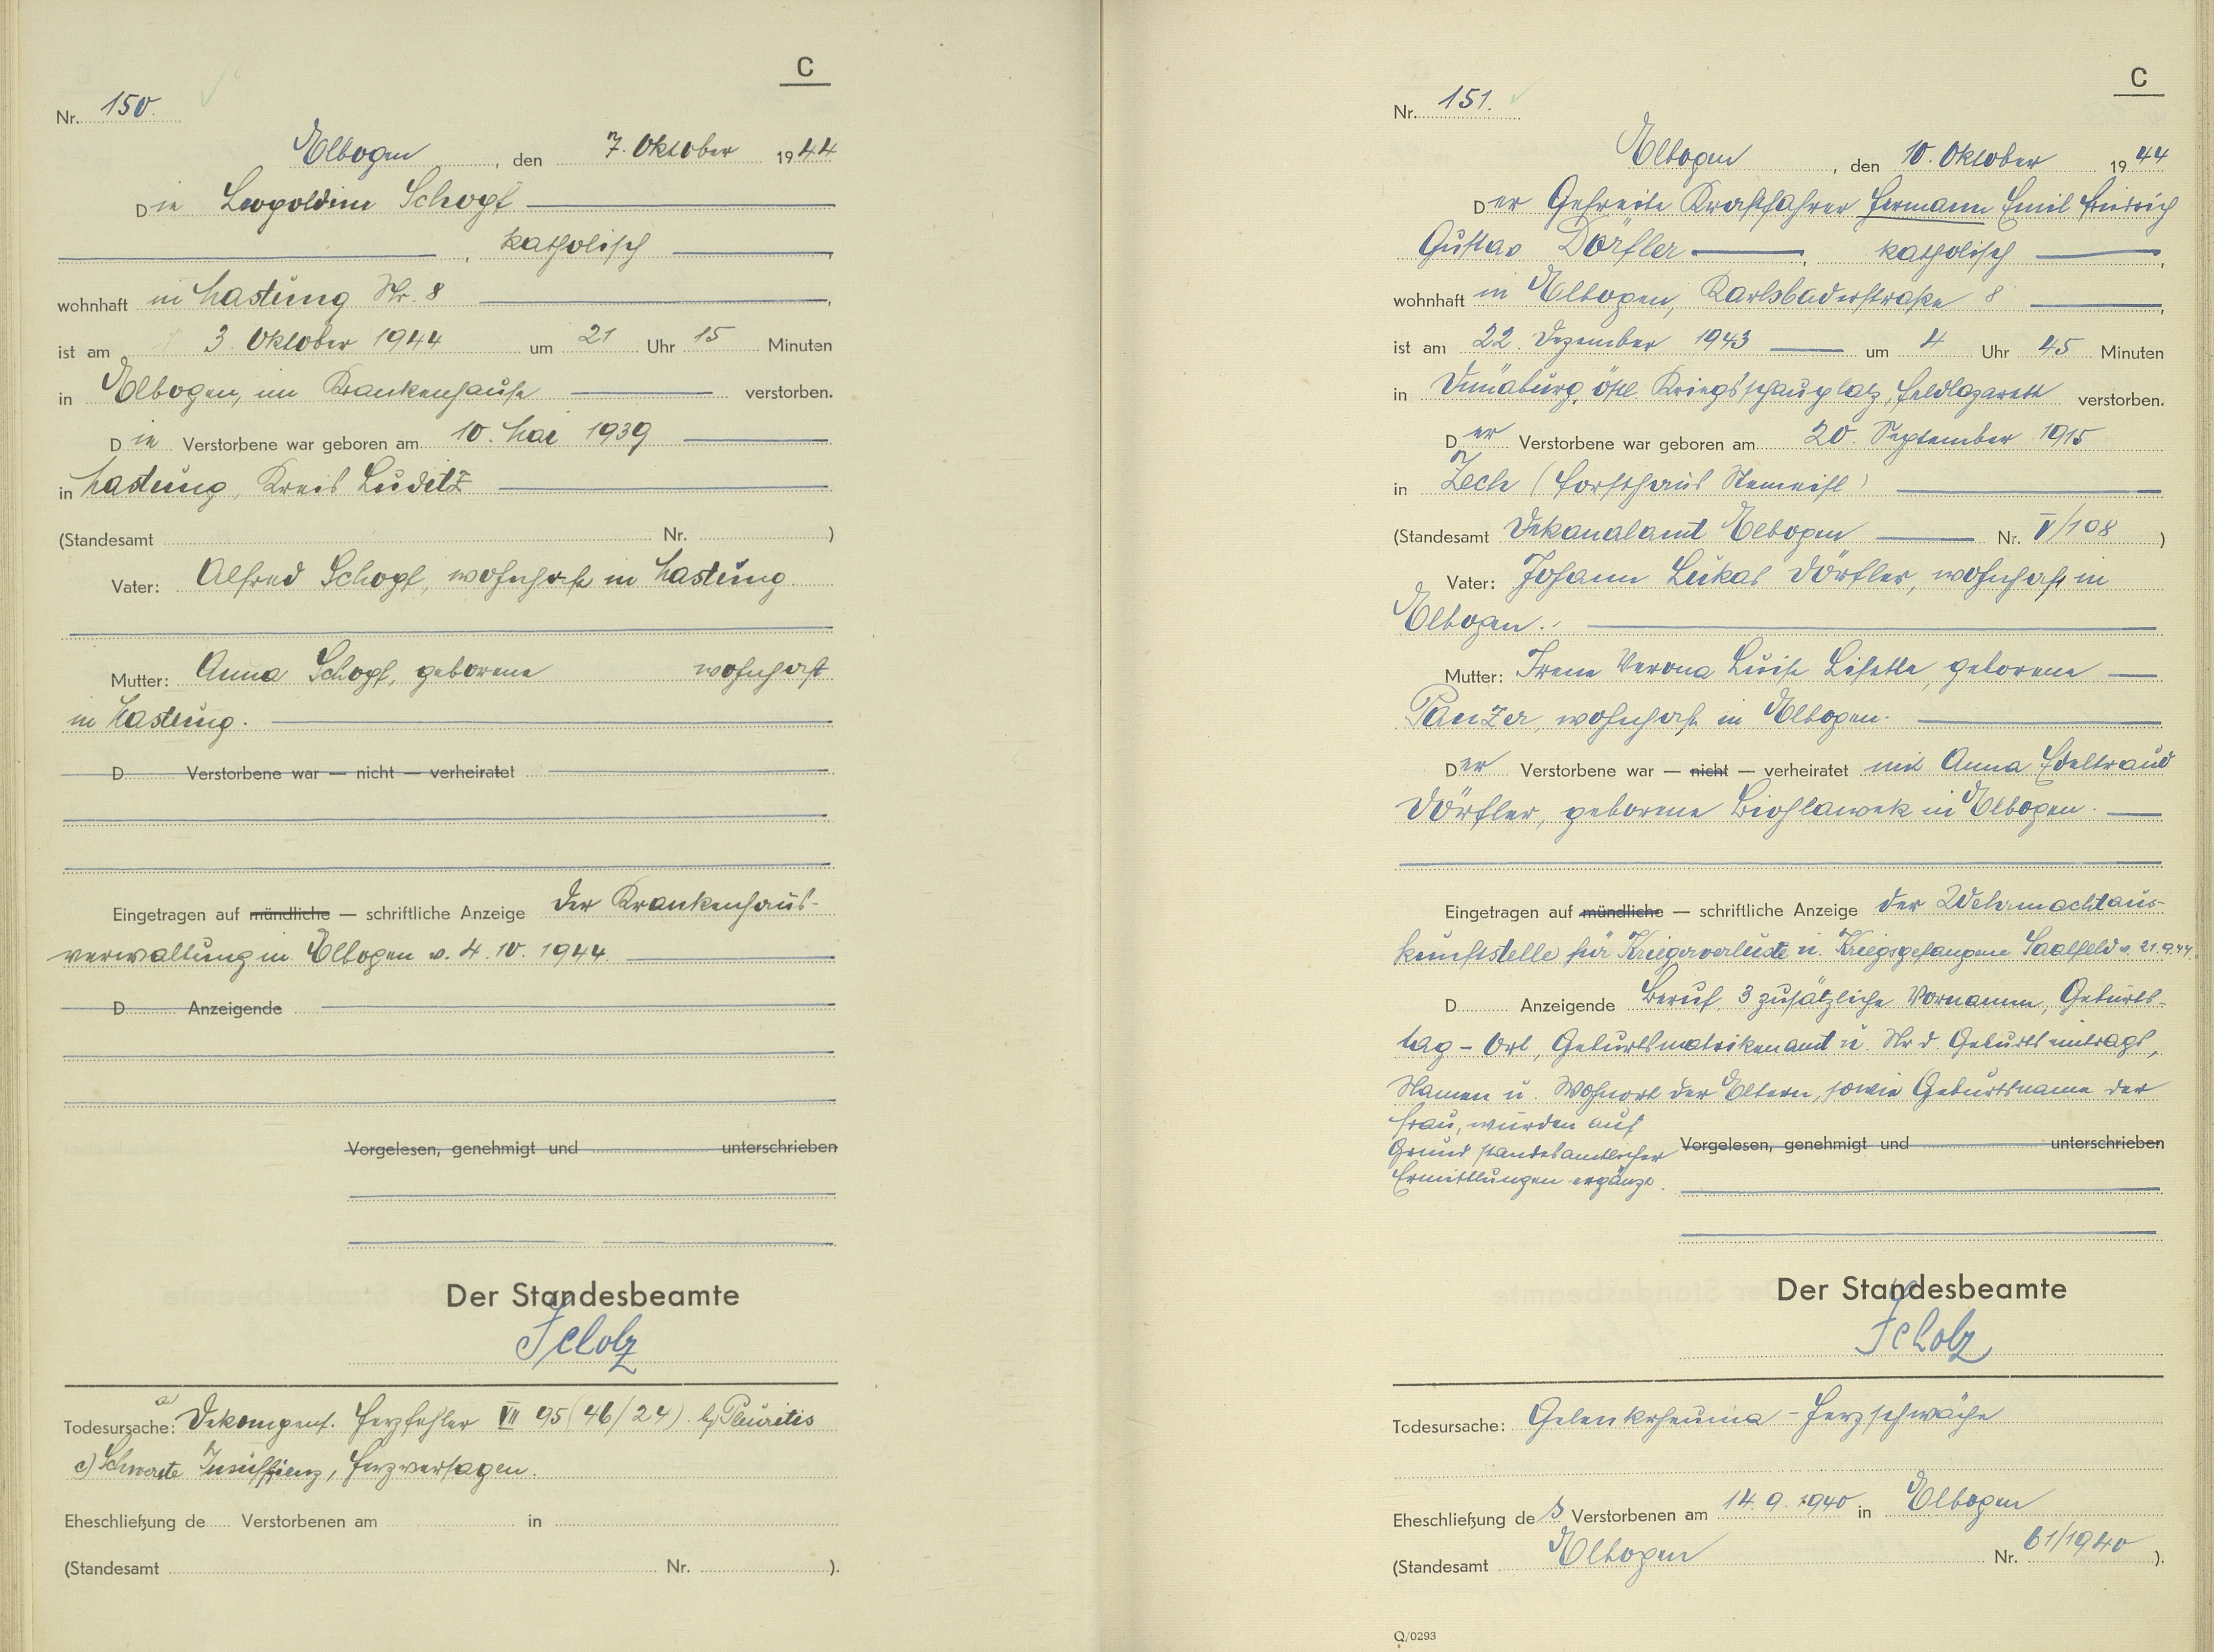 C
Nr. 150.
Elbogen, den 7. Oktober 1944
Die Leopoldine Schopf
, katholisch
wohnhaft in Lastung Nr. 8
ist am 3. Oktober 1944 um 21 Uhr 15 Minuten
in Elbogen, im Krankenhause verstorben.
Die Verstorbene war geboren am 10. Mai 1939
in Lastung, Kreis Luditz
(Standesamt Nr. )
Vater: Alfred Schopf, wohnhaft in Lastung
Mutter: Anna Schopf, geborene wohnhaft
in Lastung.
D Verstorbene war — nicht — verheiratet
Eingetragen auf mündliche — schriftliche Anzeige der Krankenhaus-
verwaltung in Elbogen v. 4.10.1944
D Anzeigende
Vorgelesen, genehmigt und unterschrieben
Der Standesbeamte
Scholz
Todesursache: a) Dekompens. Herzfehler VII 95 (46/24). b) Pleuritis
c) Schwerste Insuffizienz, Herzversagen.
Eheschließung de Verstorbenen am in
(Standesamt Nr. ).
C
Nr. 151.
Elbogen, den 10. Oktober 1944
Der Gefreite Kraftfahrer Hermann Emil Friedrich
Gustav Dörfler, katholisch
wohnhaft in Elbogen, Karlsbaderstraße 8
ist am 22. Dezember 1943 um 4 Uhr 45 Minuten
in Dünaburg, östl. Kriegsschauplatz, Feldlazarett verstorben.
Der Verstorbene war geboren am 20. September 1915
in Zech (Forsthaus )
(Standesamt Dekanalamt Elbogen Nr. V/108 )
Vater: Johann Lukas Dörfler, wohnhaft in
Elbogen.
Mutter: Irene Verona Luise Lisette, geborene
Panzer, wohnhaft in Elbogen.
Der Verstorbene war — nicht — verheiratet mit Anna Edeltraud
Dörfler, geborene in Elbogen.
Eingetragen auf mündliche — schriftliche Anzeige der Wehrmachtaus-
kunftstelle für Kriegerverluste u. Kriegsgefangene Saalfeld v. 21.9.44.
D Anzeigende Beruf, 3 zusätzliche Vornamen, Geburts-
tag - Ort, Geburtsmatrikenamt u. Nr. d. Geburtseintrags,
Namen u. Wohnort der Eltern, sowie Geburtsname der
Frau, wurden auf
Grund standesamtlicher
Ermittlungen ergänzt.
Vorgelesen, genehmigt und unterschrieben
Der Standesbeamte
Scholz
Todesursache: Gelenkrheuma - Herzschwäche
Eheschließung des Verstorbenen am 14.9.1940 in Elbogen
(Standesamt Elbogen Nr. 61/1940 ).
Q/0293